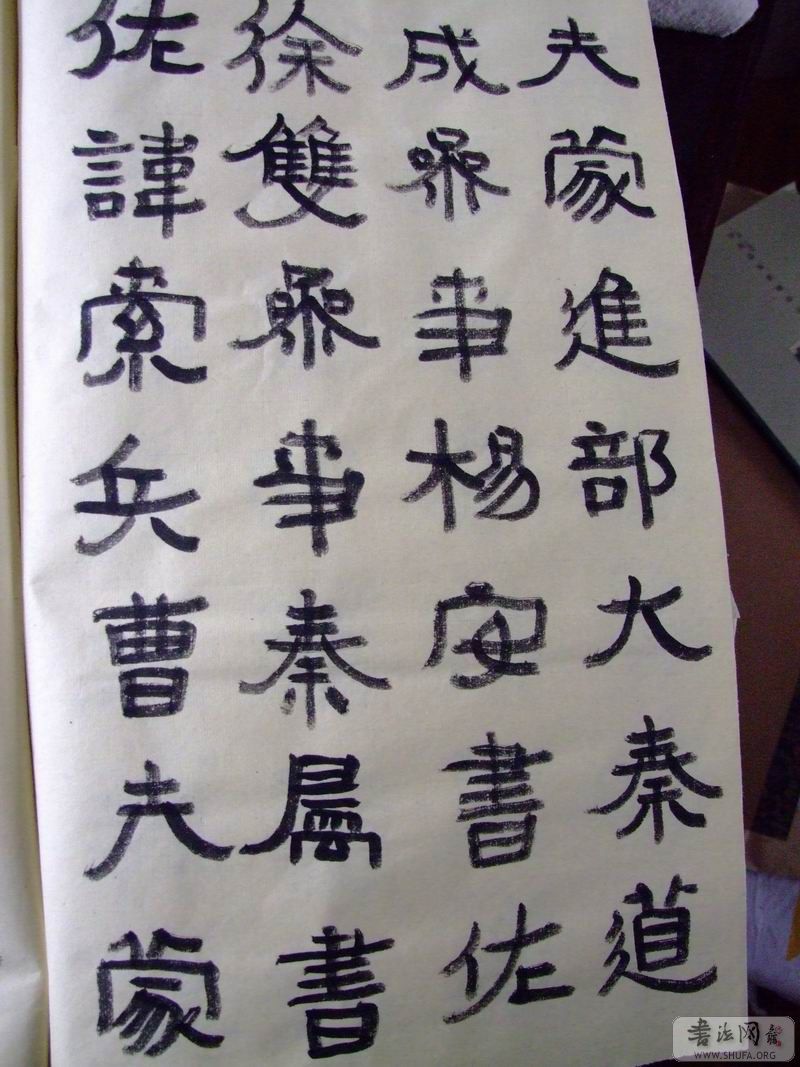 夫蒙進部大秦道
成參事楊安書佐
徐雙參事秦書
佐諱索兵曹夫蒙
書法网
WWW.SHUFA.ORG